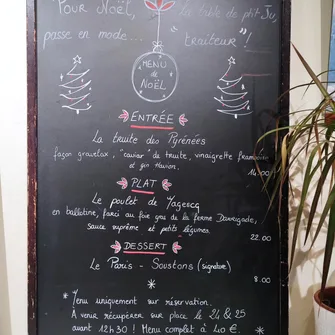 Pour Noël, La table de ptit Ju,
passe en mode... "traiteur"!
MENU
de
NOËL
ENTRÉE
La truite des Pyrénées
façon gravelax, caviar de truite, vinaigrette framboise
et gin
14.00
PLAT
Le poulet de
en ballotine, farci au foie gras de la ferme
sauce suprême et petits légumes.
22.00
DESSERT
Le Paris - Soustons (signature)
8.00
*
* Menu uniquement sur réservation.
A venir récupérer sur place le 24 & 25
avant 12h30! Menu complet à 40 €. *